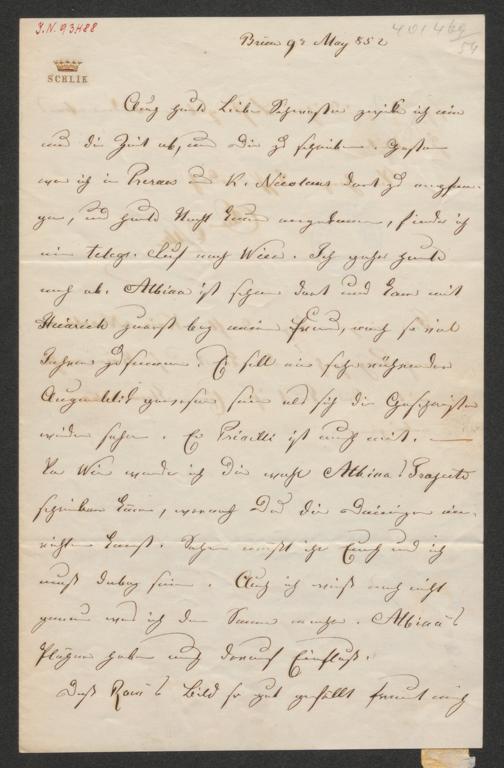 J.N. 93488
401469
54
SCHLIK
Brünn 9t May 852
Auch heute Liebe Schwester zwicke ich mir
nur die Zeit ab, um dir zu schreiben. Gestern
war ich in Prerau um K. Nicolaus dort zu empfan-
gen, und heute Nacht kaum angekommen, finde ich
ein telegr. Ruf nach Wien. Ich gehe heute
noch ab. Albina ist schon dort und kam mit
Heinrich zuerst bey meiner Frau, nach so viel
Jahren zusammen. Es soll ein sehr rührender
Augenblick gewesen sein als sich die Geschwister
wieder sahen. E. ist auch mit.
Von Wien werde ich dir wohl Albina's Projecte
schreiben können, wornach Du die Deinigen ein-
richten kannst. Sehen müßt ihr Euch und ich
muß dabey sein. Auch ich weiß noch nicht
genau was ich den Sommer mache. Albina's
Pläne haben auch darauf Einfluß.
Daß Bild so gut gefällt freut mich